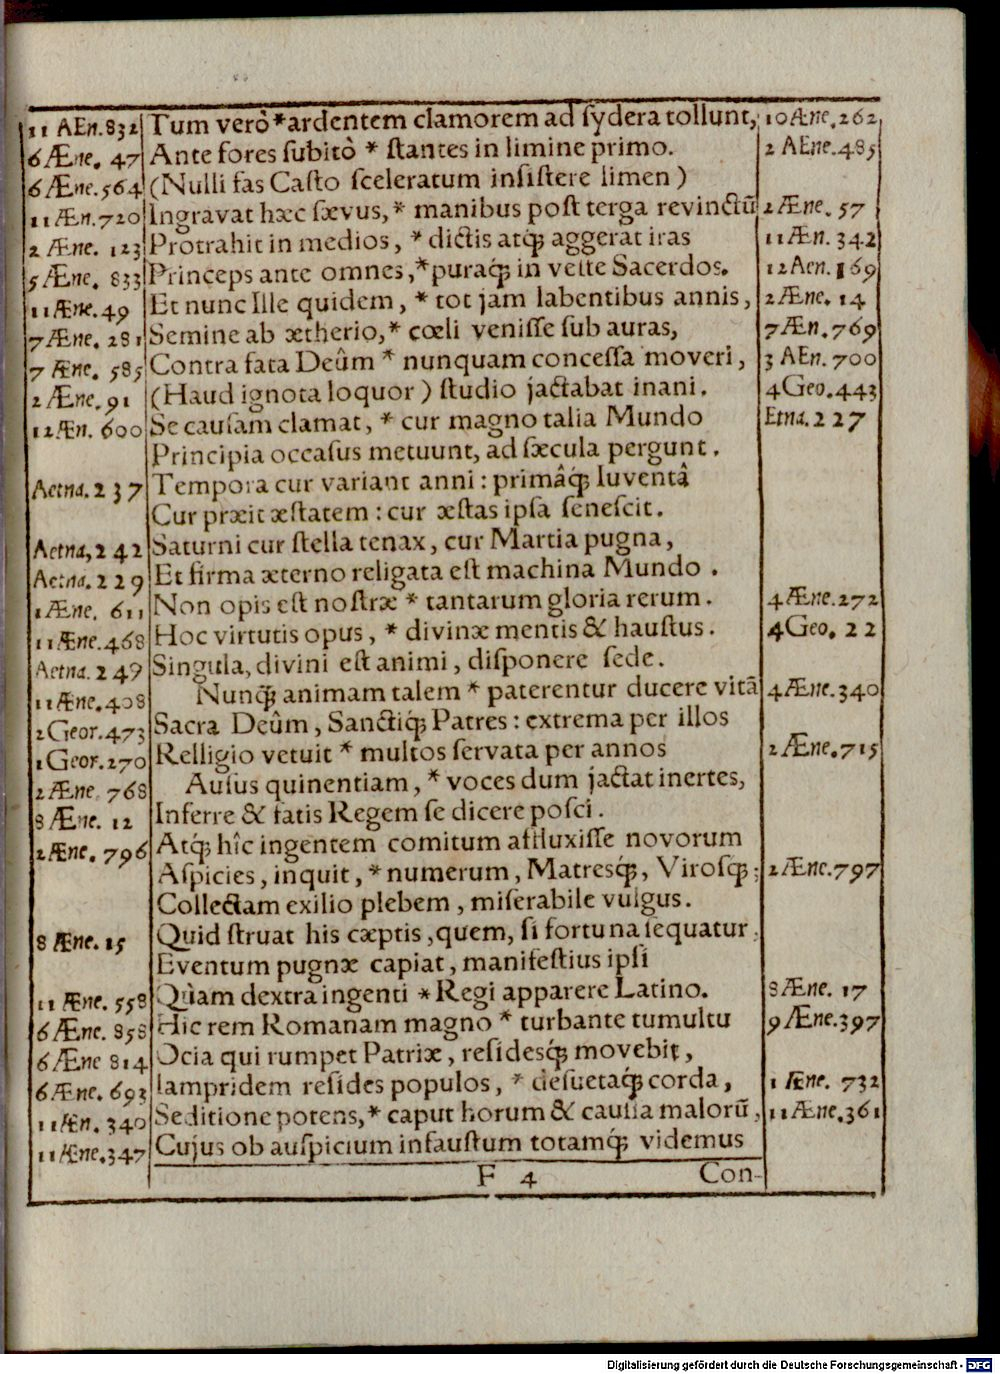 11 AEn.832 Tum verò *ardentem clamorem ad ſydera tollunt, 10Æne.262,
6Æne. 47 Ante fores ſubitò * ſtantes in limine primo. 2 AEne.485
6Æne.564 (Nulli fas Caſto ſceleratum inſiſtere limen)
11Æn.720 Ingravat hæc ſævus,* manibus poſt terga revinctũ 2Æne. 57
2 Æne. 123 Protrahit in medios, * dictis atq́; aggerat iras 11Æn. 342
5Æne. 833 Princeps ante omnes,*puraq́; in veſte Sacerdos. 12Aen.169
11Æne.49 Et nunc Ille quidem, * tot jam labentibus annis, 2Æne. 14
7Æne. 281 Semine ab ætherio,* cœli veniſſe ſub auras, 7Æn.769
7 Æne. 585 Contra fata Deûm * nunquam conceſſa moveri, 3 AEn. 700
2Æne.91 (Haud ignota loquor) ſtudio jactabat inani. 4Geo.443
12Æn. 600 Se cauſam clamat, * cur magno talia Mundo Etna.227
Principia occaſus metuunt, ad ſæcula pergunt.
Aetna.237 Tempora cur variant anni: primâq́; Iuventâ
Cur præit æſtatem: cur æſtas ipſa ſeneſcit.
Aetna,242 Saturni cur ſtella tenax, cur Martia pugna,
Aetna.229 Et firma æterno religata eſt machina Mundo.
1Æne. 611 Non opis eſt noſtræ * tantarum gloria rerum. 4Æne.272
11Æne.468 Hoc virtutis opus, * divinæ mentis & hauſtus. 4Geo. 22
Aetna.249 Singula, divini eſt animi, diſponere ſede.
11Æne.408 Nunq́; animam talem * paterentur ducere vitã 4Æne.340
2Geor.473 Sacra Deûm, Sanctiq́; Patres: extrema per illos
1Geor.270 Relligio vetuit * multos ſervata per annos 2Æne.715
2Æne. 768 Auſus quinentiam, * voces dum jactat inertes,
8Æne. 12 Inferre & fatis Regem ſe dicere poſci.
2Æne. 796 Atq́; hîc ingentem comitum affluxiſſe novorum
Aſpicies, inquit, * numerum, Matresq́;, Viroſq́;, 2Æne.797
Collectam exilio plebem, miſerabile vulgus.
8 Æne. 15 Quid ſtruat his cæptis, quem, ſi fortuna ſequatur,
Eventum pugnæ capiat, manifeſtius ipſi
11 Æne. 558 Quàm dextra ingenti * Regi apparere Latino. 8Æne. 17
6Æne. 858 Hic rem Romanam magno * turbante tumultu 9Æne.397
6Æne 814 Ocia qui rumpet Patriæ, reſidesq́; movebit,
6Æne. 693 Iampridem reſides populos, * deſuetaq́; corda, 1 Æne. 732
11Æn. 340 Seditione potens,* caput horum & cauſſa malorũ, 11Æne.361
11Æne.347 Cujus ob auſpicium infauſtum totamq́; videmus
F 4 Con-
Digitalisierung gefördert durch die Deutsche Forschungsgemeinschaft - DFG